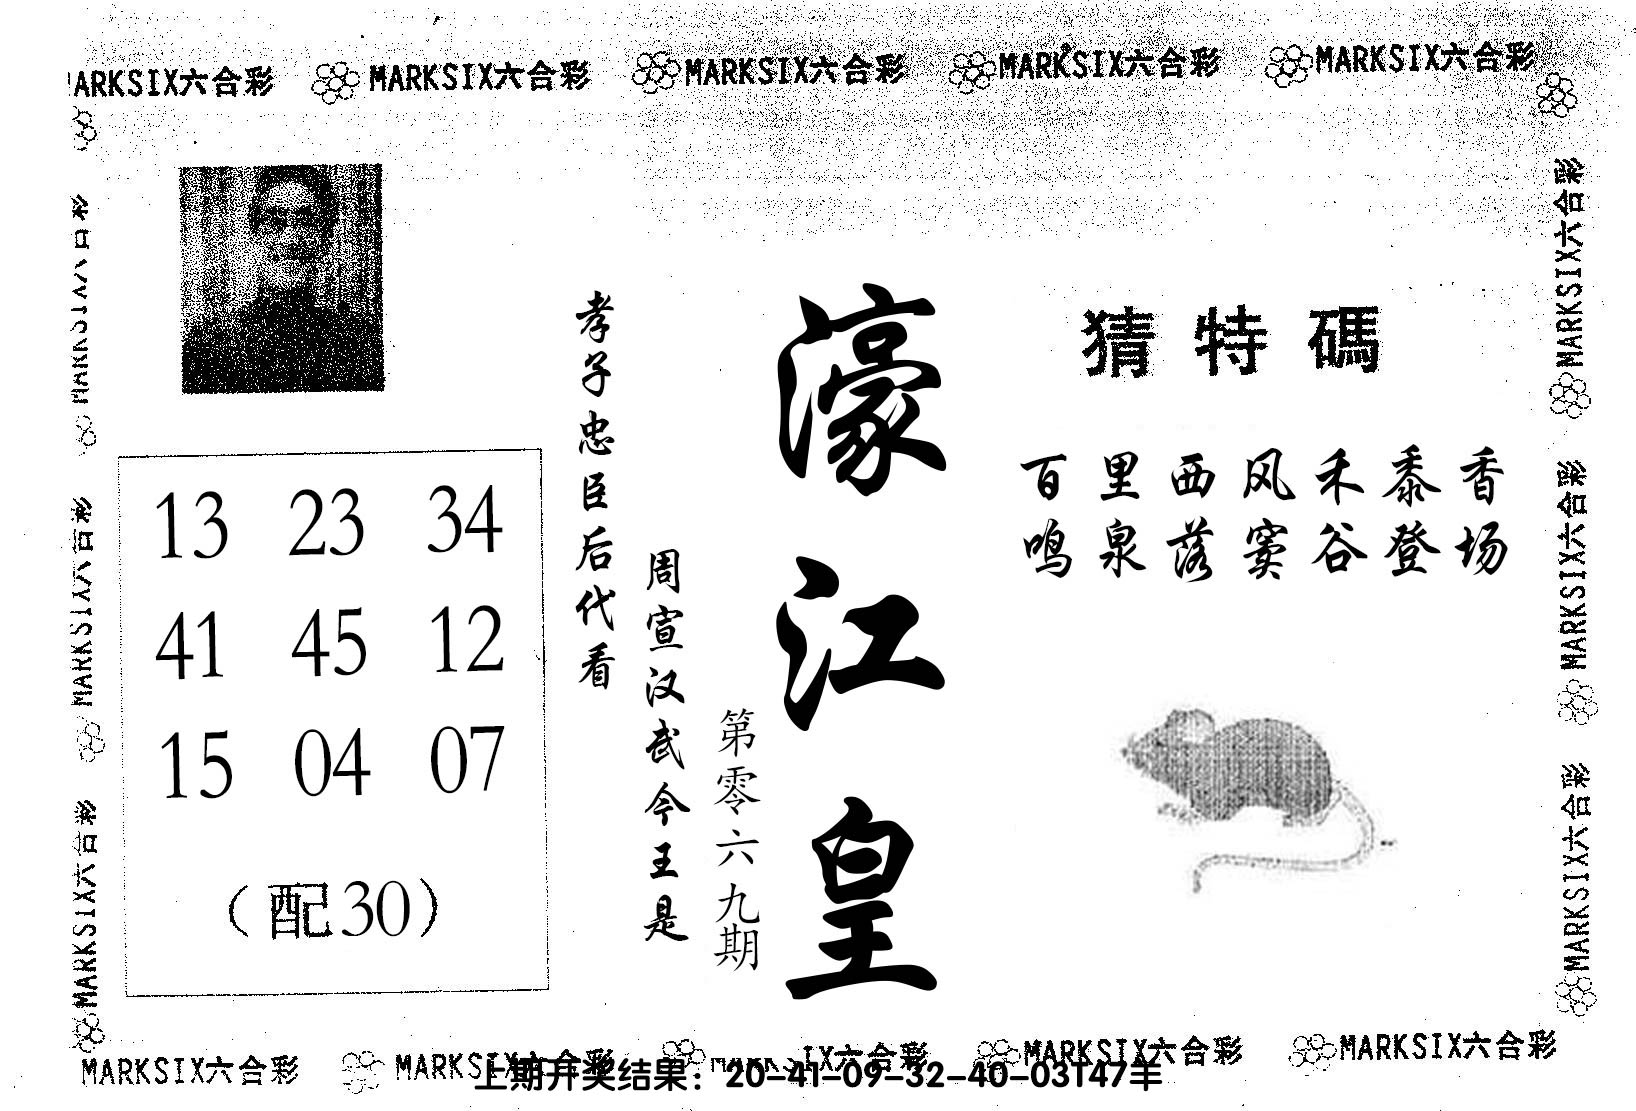 MARKSIX六合彩 MARKSIX六合彩 MARKSIX六合彩 MARKSIX六合彩 MARKSIX六合彩
猜特碼
百里西风禾黍香
鸣泉落窦谷登场
濠江皇
第零六九期
周宣汉武今王是
孝子忠臣后代看
13 23 34
41 45 12
15 04 07
（配30）
MARKSIX六合彩
MARKSIX六合彩
MARKSIX六合彩
MARKSIX六合彩
MARKSIX六合彩
MARKSIX六合彩 MARKSIX六合彩 MARKSIX六合彩 MARKSIX六合彩
上期开奖结果：20-41-09-32-40-03T47羊